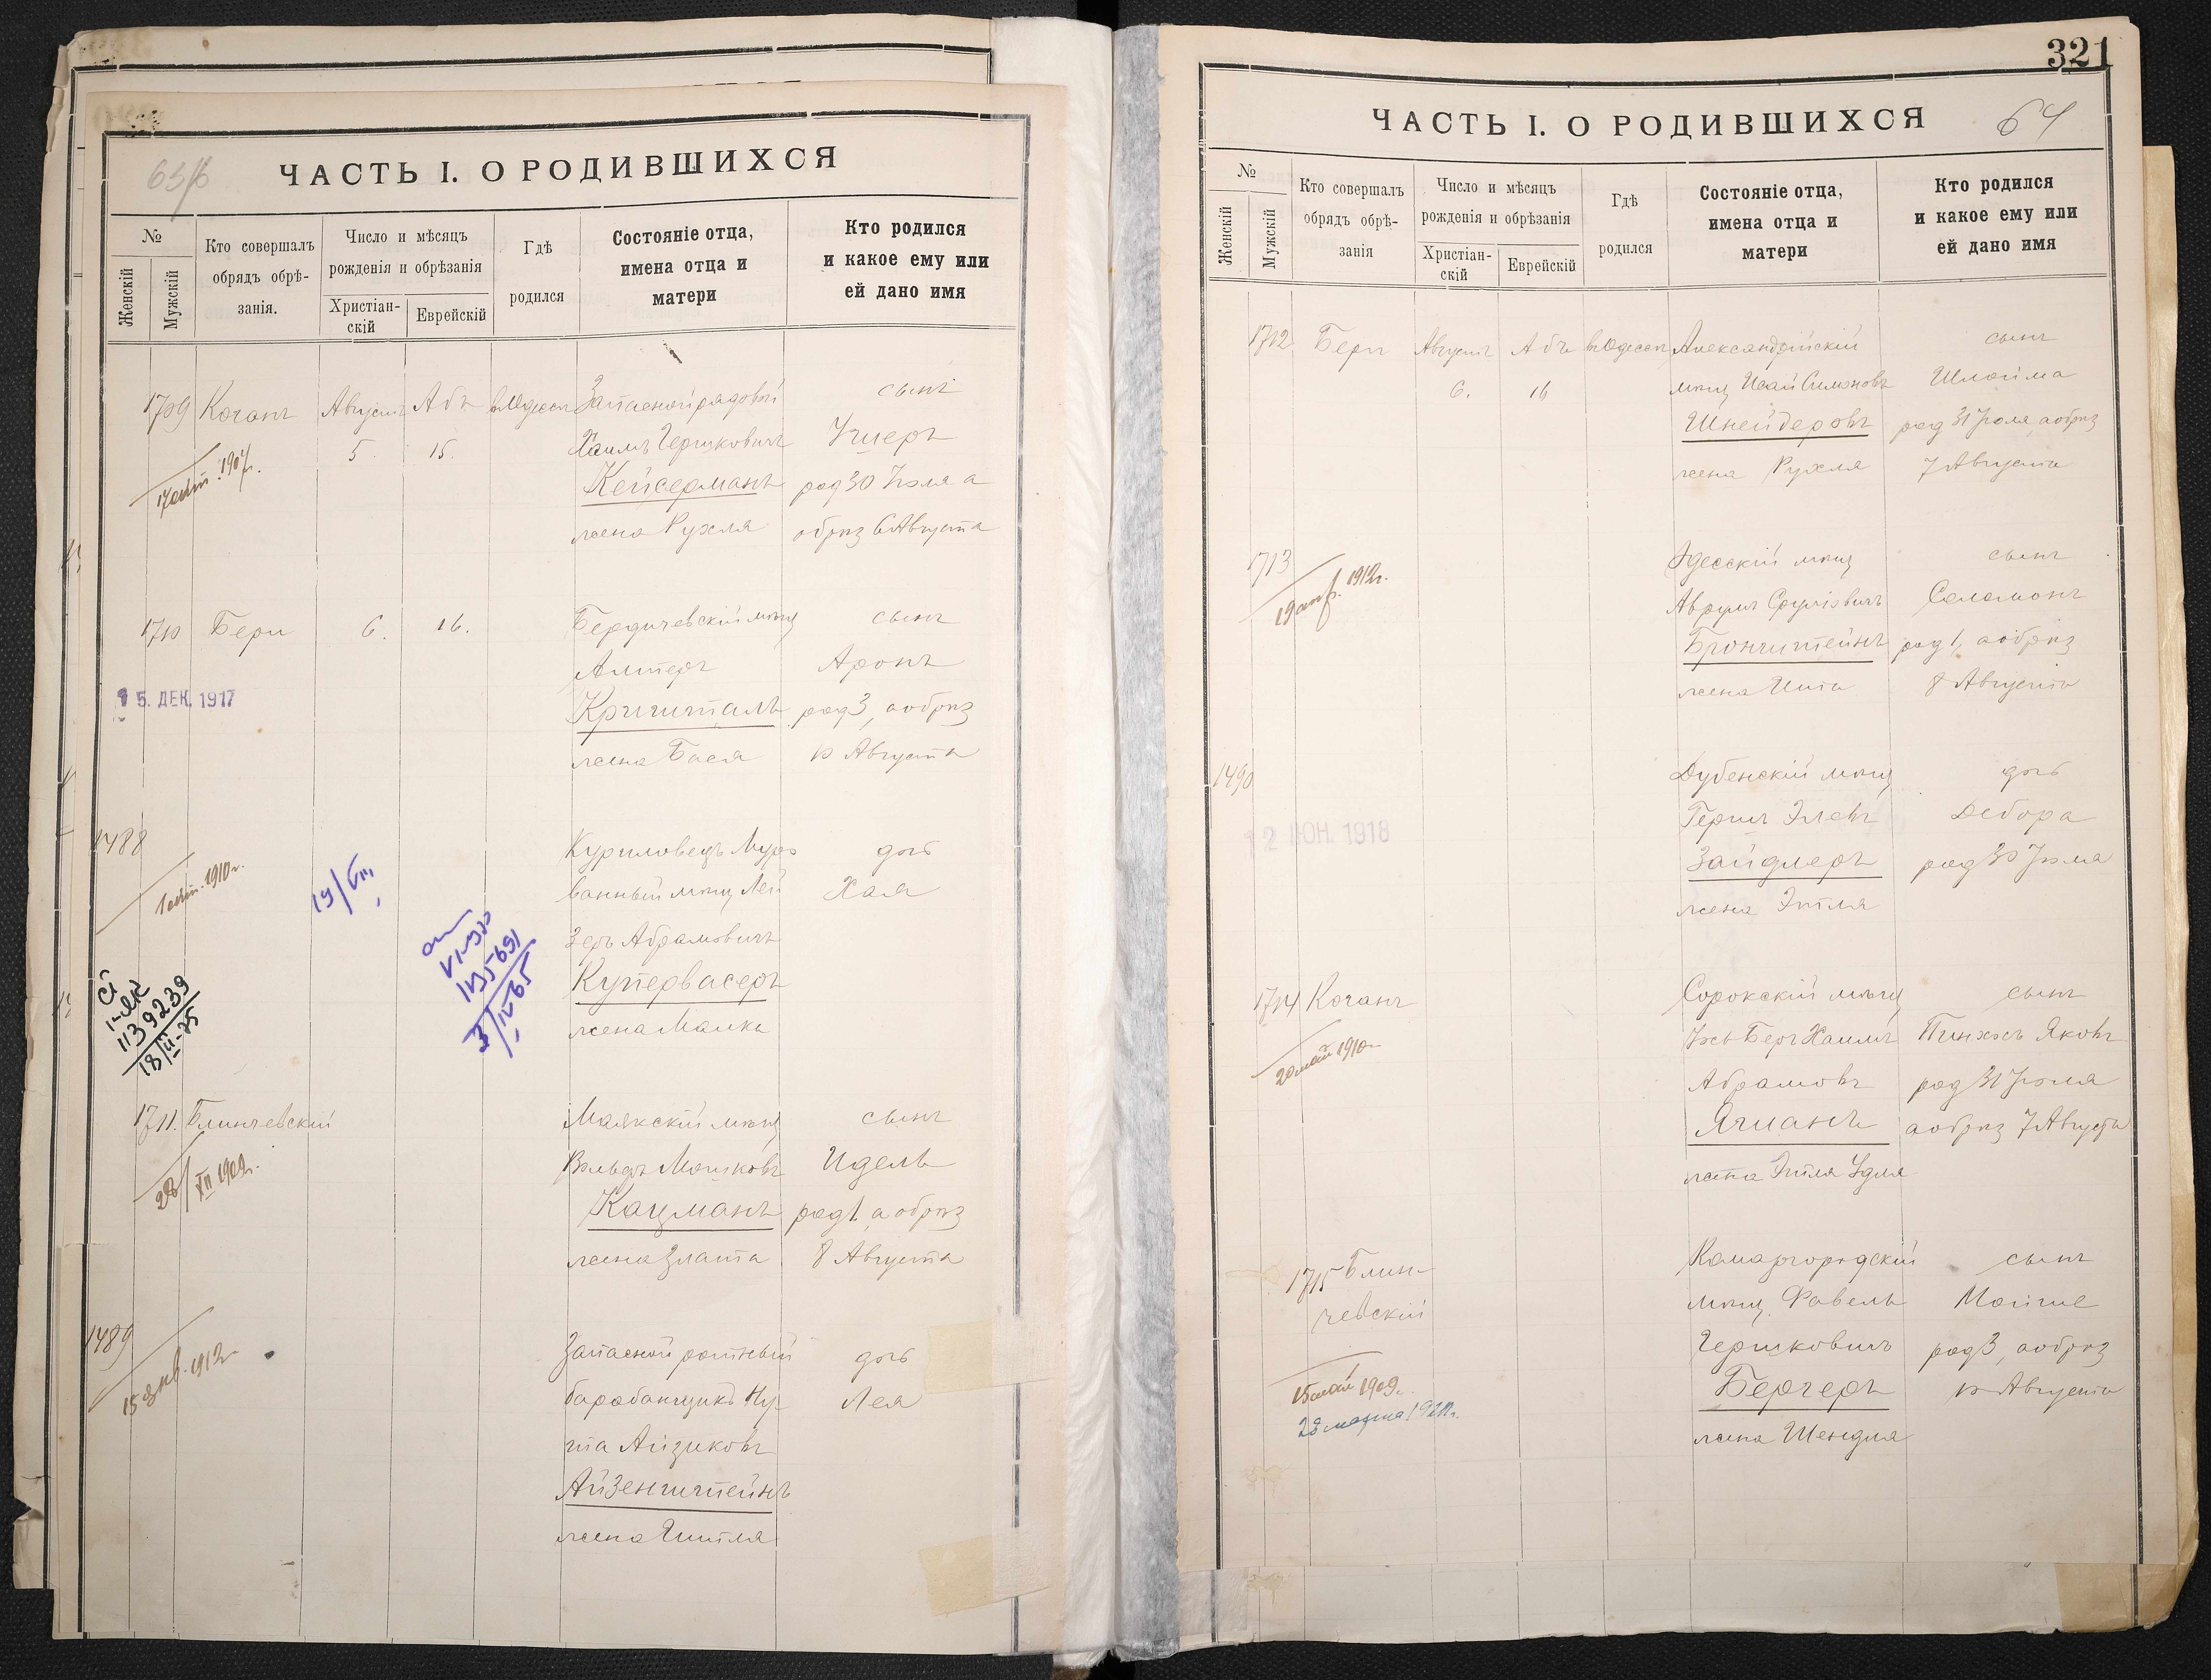 63/б
ЧАСТЬ I. О РОДИВШИХСЯ
№
Женскій
Мужскій
Кто совершалъ
обрядъ обрѣ-
занія.
Число и мѣсяцъ
рожденія и обрѣзанія
Христіан-
скій
Еврейскій
Гдѣ
родился
Состояніе отца,
имена отца и
матери
Кто родился
и какое ему или
ей дано имя
1709 Коганъ Августъ Абъ въ Одессѣ Запасной рядовой сынъ
5. 15. Хаимъ Гершковичъ Ушеръ
17 1907г.
Кейсерманъ род 30 Іюля а
жена Рухля обрѣз 6 Августа
1710 Бери 6. 16. Бердичевскій мѣщ сынъ
Алтеръ Аронъ
5. ДЕК. 1917
Кришталъ род 3, а обрѣз
жена Бася 10 Августа
1488 Куриловецъ Муро дочь
1 1910г. 19/VII
ванный мѣщ Лей Хая
зеръ Абрамовичъ
Купервасеръ
жена Малка
1135691
3/IV-65
1139239
18/II-75
1711. Блинчевскій Маякскій мѣщ сынъ
Вольфъ Мошковъ Идель
28/XII 1909г.
Кацманъ род 1. а обрѣз
жена Злата 8 Августа
1489 Запасной ротный дочь
15 янв. 1912г
барабанщикъ Ну Лея
та Айзиковъ
Айзенштейнъ
жена Гитля
321
ЧАСТЬ I. О РОДИВШИХСЯ
64
№
Женскій
Мужскій
Кто совершалъ
обрядъ обрѣ-
занія
Число и мѣсяцъ
рожденія и обрѣзанія
Христіан-
скій
Еврейскій
Гдѣ
родился
Состояніе отца,
имена отца и
матери
Кто родился
и какое ему или
ей дано имя
1712 Бери Августъ Абъ въ Одессѣ Александрійскій сынъ
6. 16 мѣщ Исай Симоновъ Шлойма
Шнейдеровъ род 31 Іюля, а обрѣз
жена Рухля 7 Августа
1713 Одесскій мѣщ сынъ
19 апр. 1912г.
Аврумъ Сруліовичъ Соломонъ
Бронштейнъ род 1, а обрѣз
жена Ита 8 Августа
1490 Дубенскій мѣщ дочь
Гершъ Элевъ Дебора
12 ИЮН. 1918
Зайдлеръ род 30 Іюля
жена Этля
1714 Коганъ Сорокскій мѣщ сынъ
Іосъ-Беръ Хаимъ Пинхосъ Яковъ
20 май 1910г
Абрамовъ род 31 Іюля
Ягманъ а обрѣз 7 Августа
жена Этля Удля
1715 Блин- Комаргородскій сынъ
чевскій мѣщ. Фавель Мойше
Гершковичъ род 3, а обрѣз
15 май 1909г.
Бергеръ 10 Августа
28 марта
жена Шендля